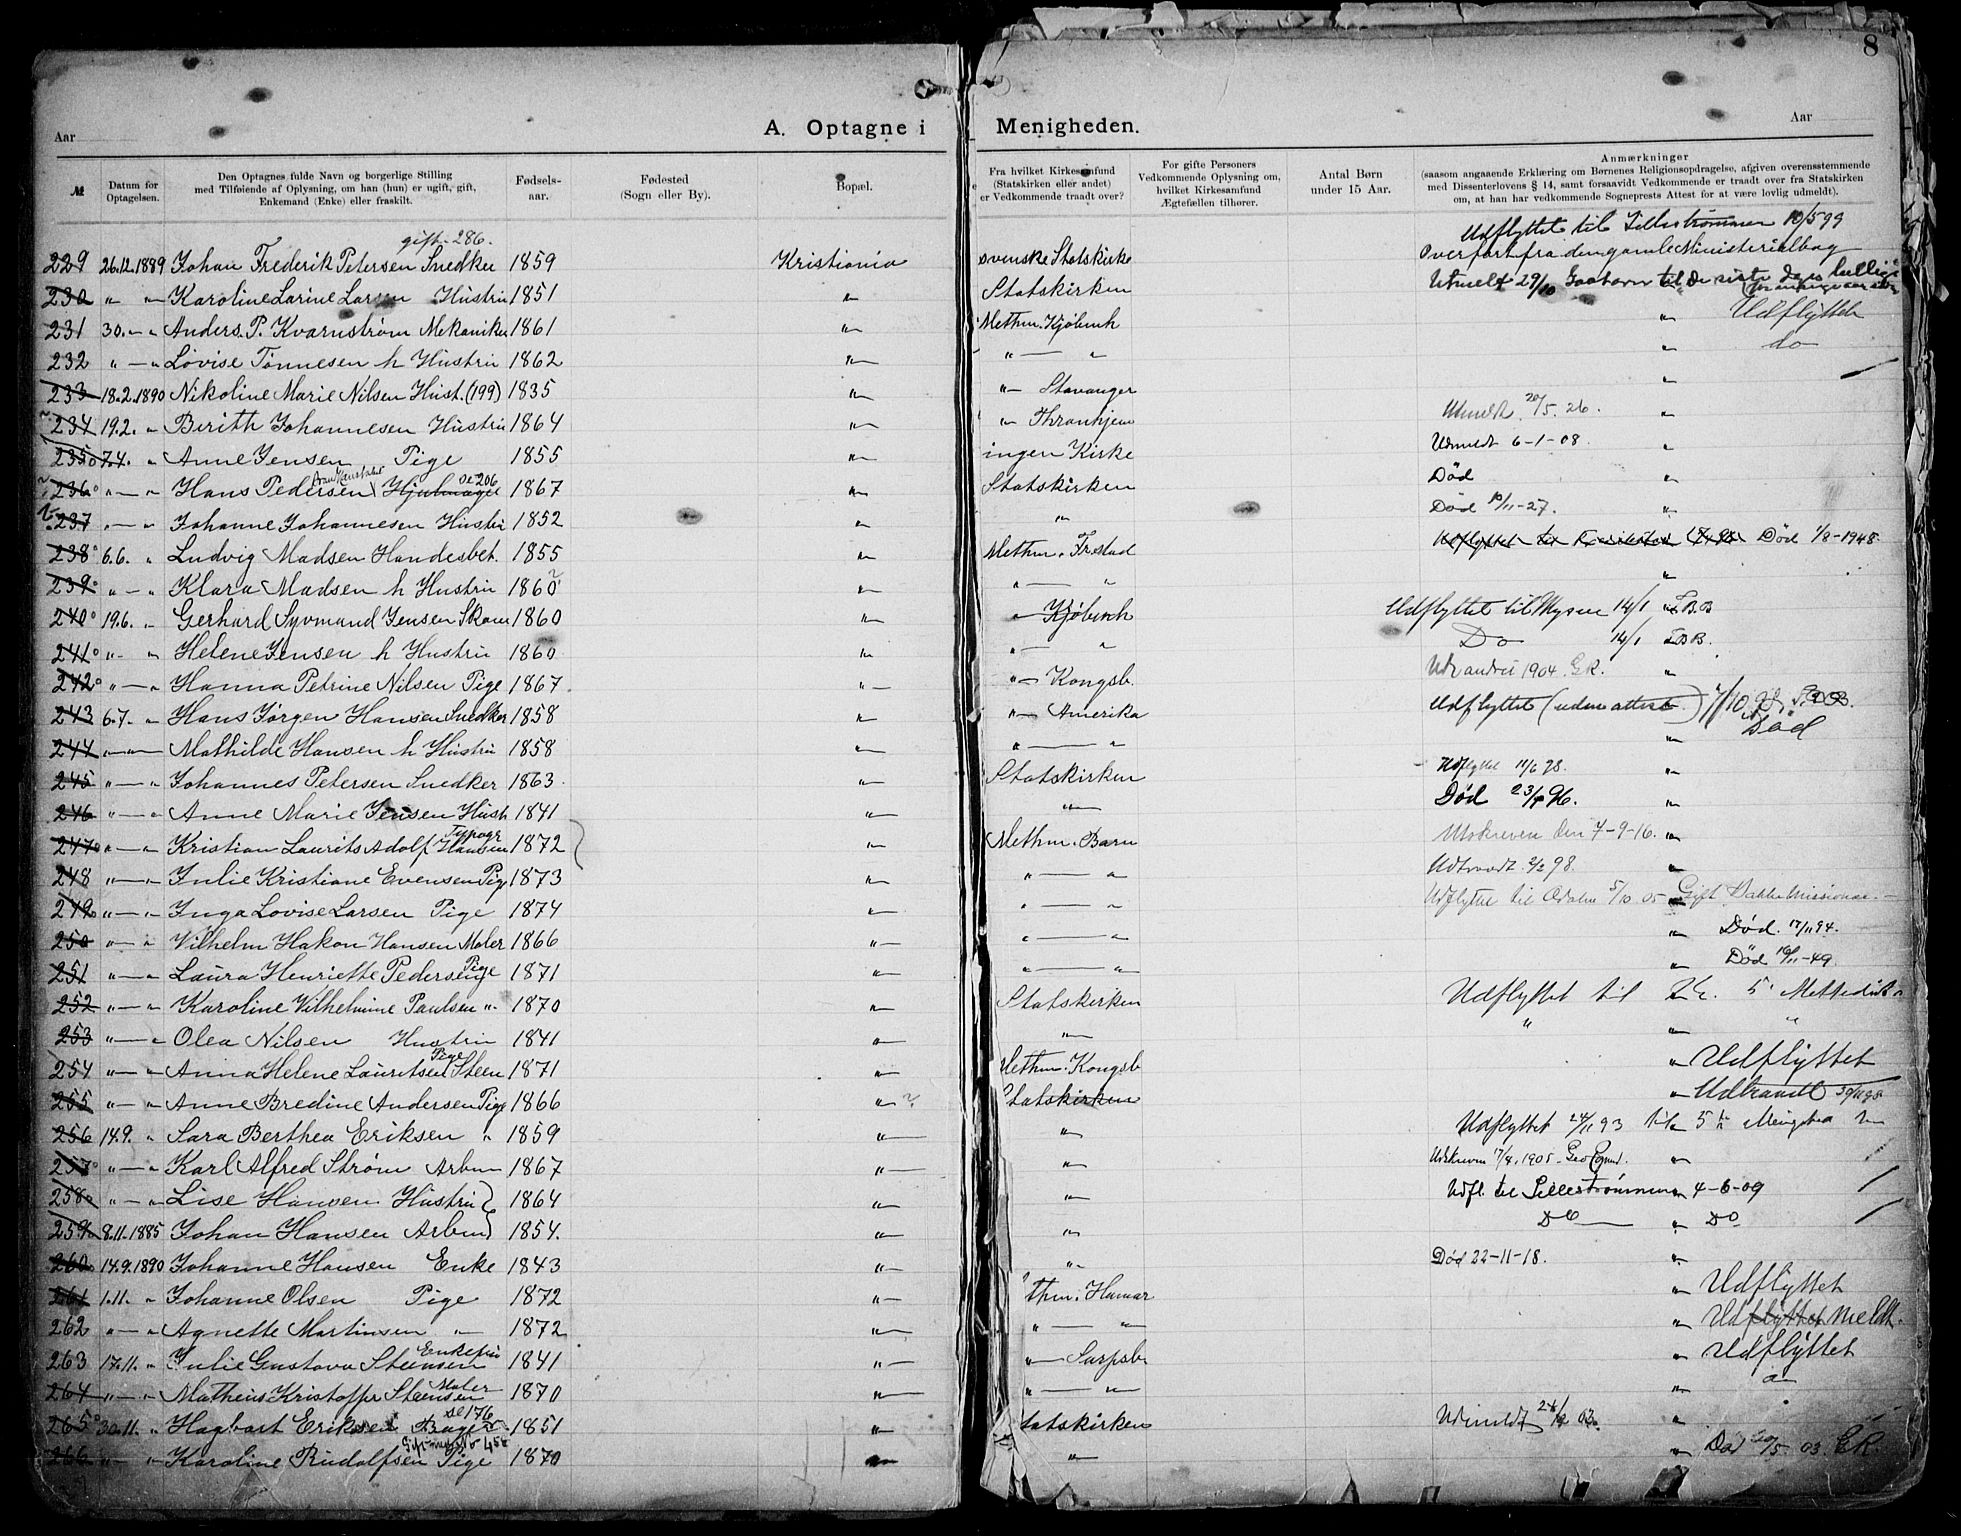 8
Aar
A. Optagne i Menigheden.
Aar
№
Datum for Optagelsen.
Den Optagnes fulde Navn og borgerlige Stilling med Tilføiende af Oplysning, om han (hun) er ugift, gift, Enkemand (Enke) eller fraskilt.
Fødsels-aar.
Fødested (Sogn eller By).
Bopæl.
Fra hvilket Kirkesamfund (Statskirken eller andet) er Vedkommende traadt over?
For gifte Personers Vedkommende Oplysning om, hvilket Kirkesamfund Ægtefællen tilhører.
Antal Børn under 15 Aar.
Anmærkninger (saasom angaaende Erklæring om Børnenes Religionsopdragelse, afgiven overensstemmende med Dissenterlovens § 14, samt forsaavidt Vedkommende er traadt over fra Statskirken om, at han har vedkommende Sogneprests Attest for at være lovlig udmeldt).
gift-286. Udflyttet til Lillestrømmen 10/5 99
229 26.12.1889 Johan Frederik Petersen Snedker 1859 Kristiania svenske Statskirke Overført fra den gamle Ministerialbog
230 " " Karoline Larine Larsen Hustru 1851 " Statskirken Utmeldt 29/10 til De siste Dages hellige
231 30. " " Anders. P. Kvarnstrøm Mekaniker 1861 " Methm. Kjøbenh " Udflyttet
232 " — " Lovise Tønnesen h Hustru 1862 " " — " " do
233 18.2.1890 Nikoline Marie Nilsen Hust. (199) 1835 " " Stavanger "
234 19.2. " Berith Johannesen Hustru 1864 " " Thronhjem Utmeldt 20/5. 26. "
235 7.4. " Anne Jensen Pige 1855 " ingen Kirke Udmeldt 6-1-08. "
236 " — " Hans Pedersen Hjulmager se 206 1867 " Statskirken Død "
237 " — " Johanne Johannesen Hustru 1852 " " Død 10/11-27. "
238 6.6. " Ludvig Madsen Handesbet. 1855 " Methm. Frestad Udflyttet til Død 1/8-1948
239 " — " Klara Madsen h Hustru 1860 " " — " "
240 19.6. " Gerhard Syvmand Jensen Skom 1860 " " Kjøbenh Udflyttet til Mysen 14/1 B.B
241 " " Helene Jensen h Hustru 1860 " " — " Do 14/1 B.B.
242 " — " Hanna Petrine Nilsen Pige 1867. " " Kongsb. Udvandret 1904. G.R. "
243 6.7. " Hans Jørgen Hansen Snedker 1858 " " Amerika Udflyttet (uden attest)
244 " — " Mathilde Hansen h Hustru 1858 " " — " " Død
245 " — " Johannes Petersen Snedker 1863. " Statskirken Udflyttet 11/6 98. "
246 " — " Anne Marie Jensen Hust 1841 " " Død 23/4 96. "
247 " — " Kristian Laurits Adolf Hansen Typogr 1872 " Methm. Barn Utskreven den 7-9-16. "
248 " — " Julie Kristiane Evensen Pig 1873 " " — " Udtraadt 2/2 98. "
249 " — " Inga Lovise Larsen Pige 1874 " " — " Udflyttet til Odalen 5/10 05 Gift
250 " — " Vilhelm Hakon Hansen Maler 1866 " " — " " Død. 17/11 94.
251 " — " Laura Henriette Pedersen Pige 1871 " " — " " Død 10/11-49.
252 " — " Karoline Vilhelmine Paulsen " 1870 " Statskirken Udflyttet til 5' Mettedist
253 " — " Olea Nilsen Hustru 1841 " " " " "
254 " — " Anna Helene Lauritsen Steen Pige 1871 " Methm. Kongsb " Udflyttet
255 " — " Anne Bredine Andersen Pige 1866 " ? Statskirken " Udtraadt
256 14.9. " Sara Berthea Eriksen " 1859 " " Udflyttet 24/11 93 til 5te
257 " — " Karl Alfred Strøm Arbm 1867 " " Udskreven 17/4. 1905. "
258 " — " Lise Hansen Hustru 1864 " " Udfl. til Lillestrømmen 4-6-09
259 8.11.1885 Johan Hansen Arbm 1854. " " Do " Do
260 14.9.1890 Johanne Hansen Enke 1843 " " Død 22-11-18. "
261 1.11. " Johanne Olsen Pige 1872 " thm. Hamar " Udflyttet
262 " — " Agnette Martinsen " 1872 " " — " " Udflyttet meldt.
263 17.11. " Julie Gustava Steensen Enkefru 1841 " " Sarpsb " Udflyttet
264 " — " Matheus Kristoffer Steensen Maler 1870 " " — " "
265 30.11. " Hagbart Eriksen Bager se 176 1851 " tatskirken Udmeldt 03. "
266 " — " Karoline Rudolfsen Pige 1870 " " " Død 20/5 03. G.R.